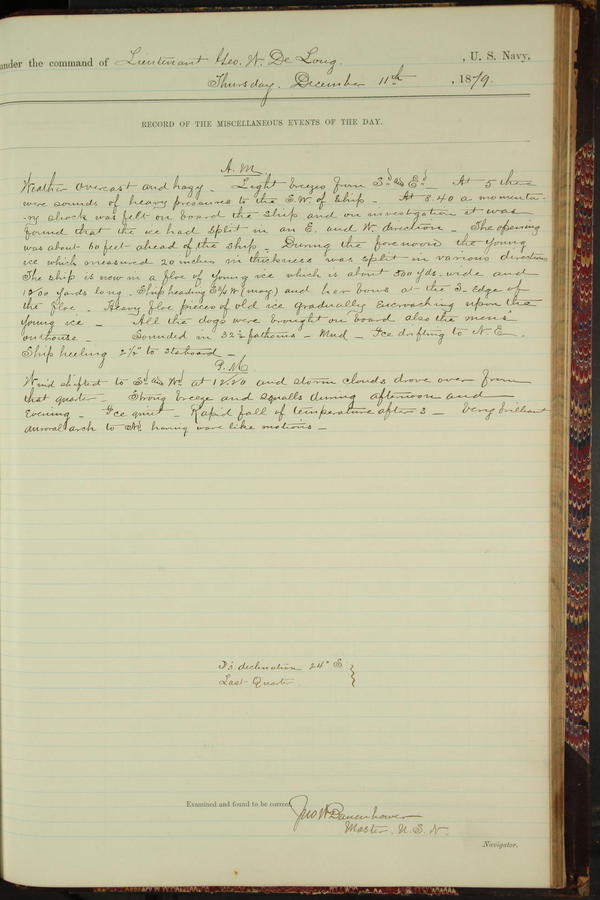 under the command of Lieutenant Geo. W. De Long. , U. S. Navy,
Thursday, December 11th , 1879.
RECORD OF THE MISCELLANEOUS EVENTS OF THE DAY.
A. M.
Weather overcast and hazy. Light breezes from Sd & Ed At 5 there
were sounds of heavy pressures to the S.W. of ship. At 8.40 a momenta-
ry shock was felt on board the ship and on investigation it was
found that the ice had split in an E. and W. direction. The opening
was about 60 feet ahead of the ship. During the forenoon the young
ice which measured 20 inches in thickness was split in various directions
The ship is now in a floe of young ice which is about 500 yds. wide and
1200 yards long. Ship heading (mag) and her bows at the S. Edge of
the floe. Heavy floe pieces of old ice gradually encroaching upon the
young ice — All the dogs were brought on board also the mens'
outhouse. Sounded in 32½ fathoms — Mud — Ice drifting to N.E.
Ship heeling 2½° to starboard —
P. M.
Wind shifted to Sd & Wd at 12.20 and storm clouds drove over from
that quarter — Strong breeze and squalls during afternoon and
Evening — Ice quiet — Rapid fall of temperature after 3 — Very brilliant
auroral arch to Nd having wave like motions —
☽'s declination 24° S. }
Last Quarter
Examined and found to be correct,
Jno W Danenhower
Master, U. S. N.
Navigator.